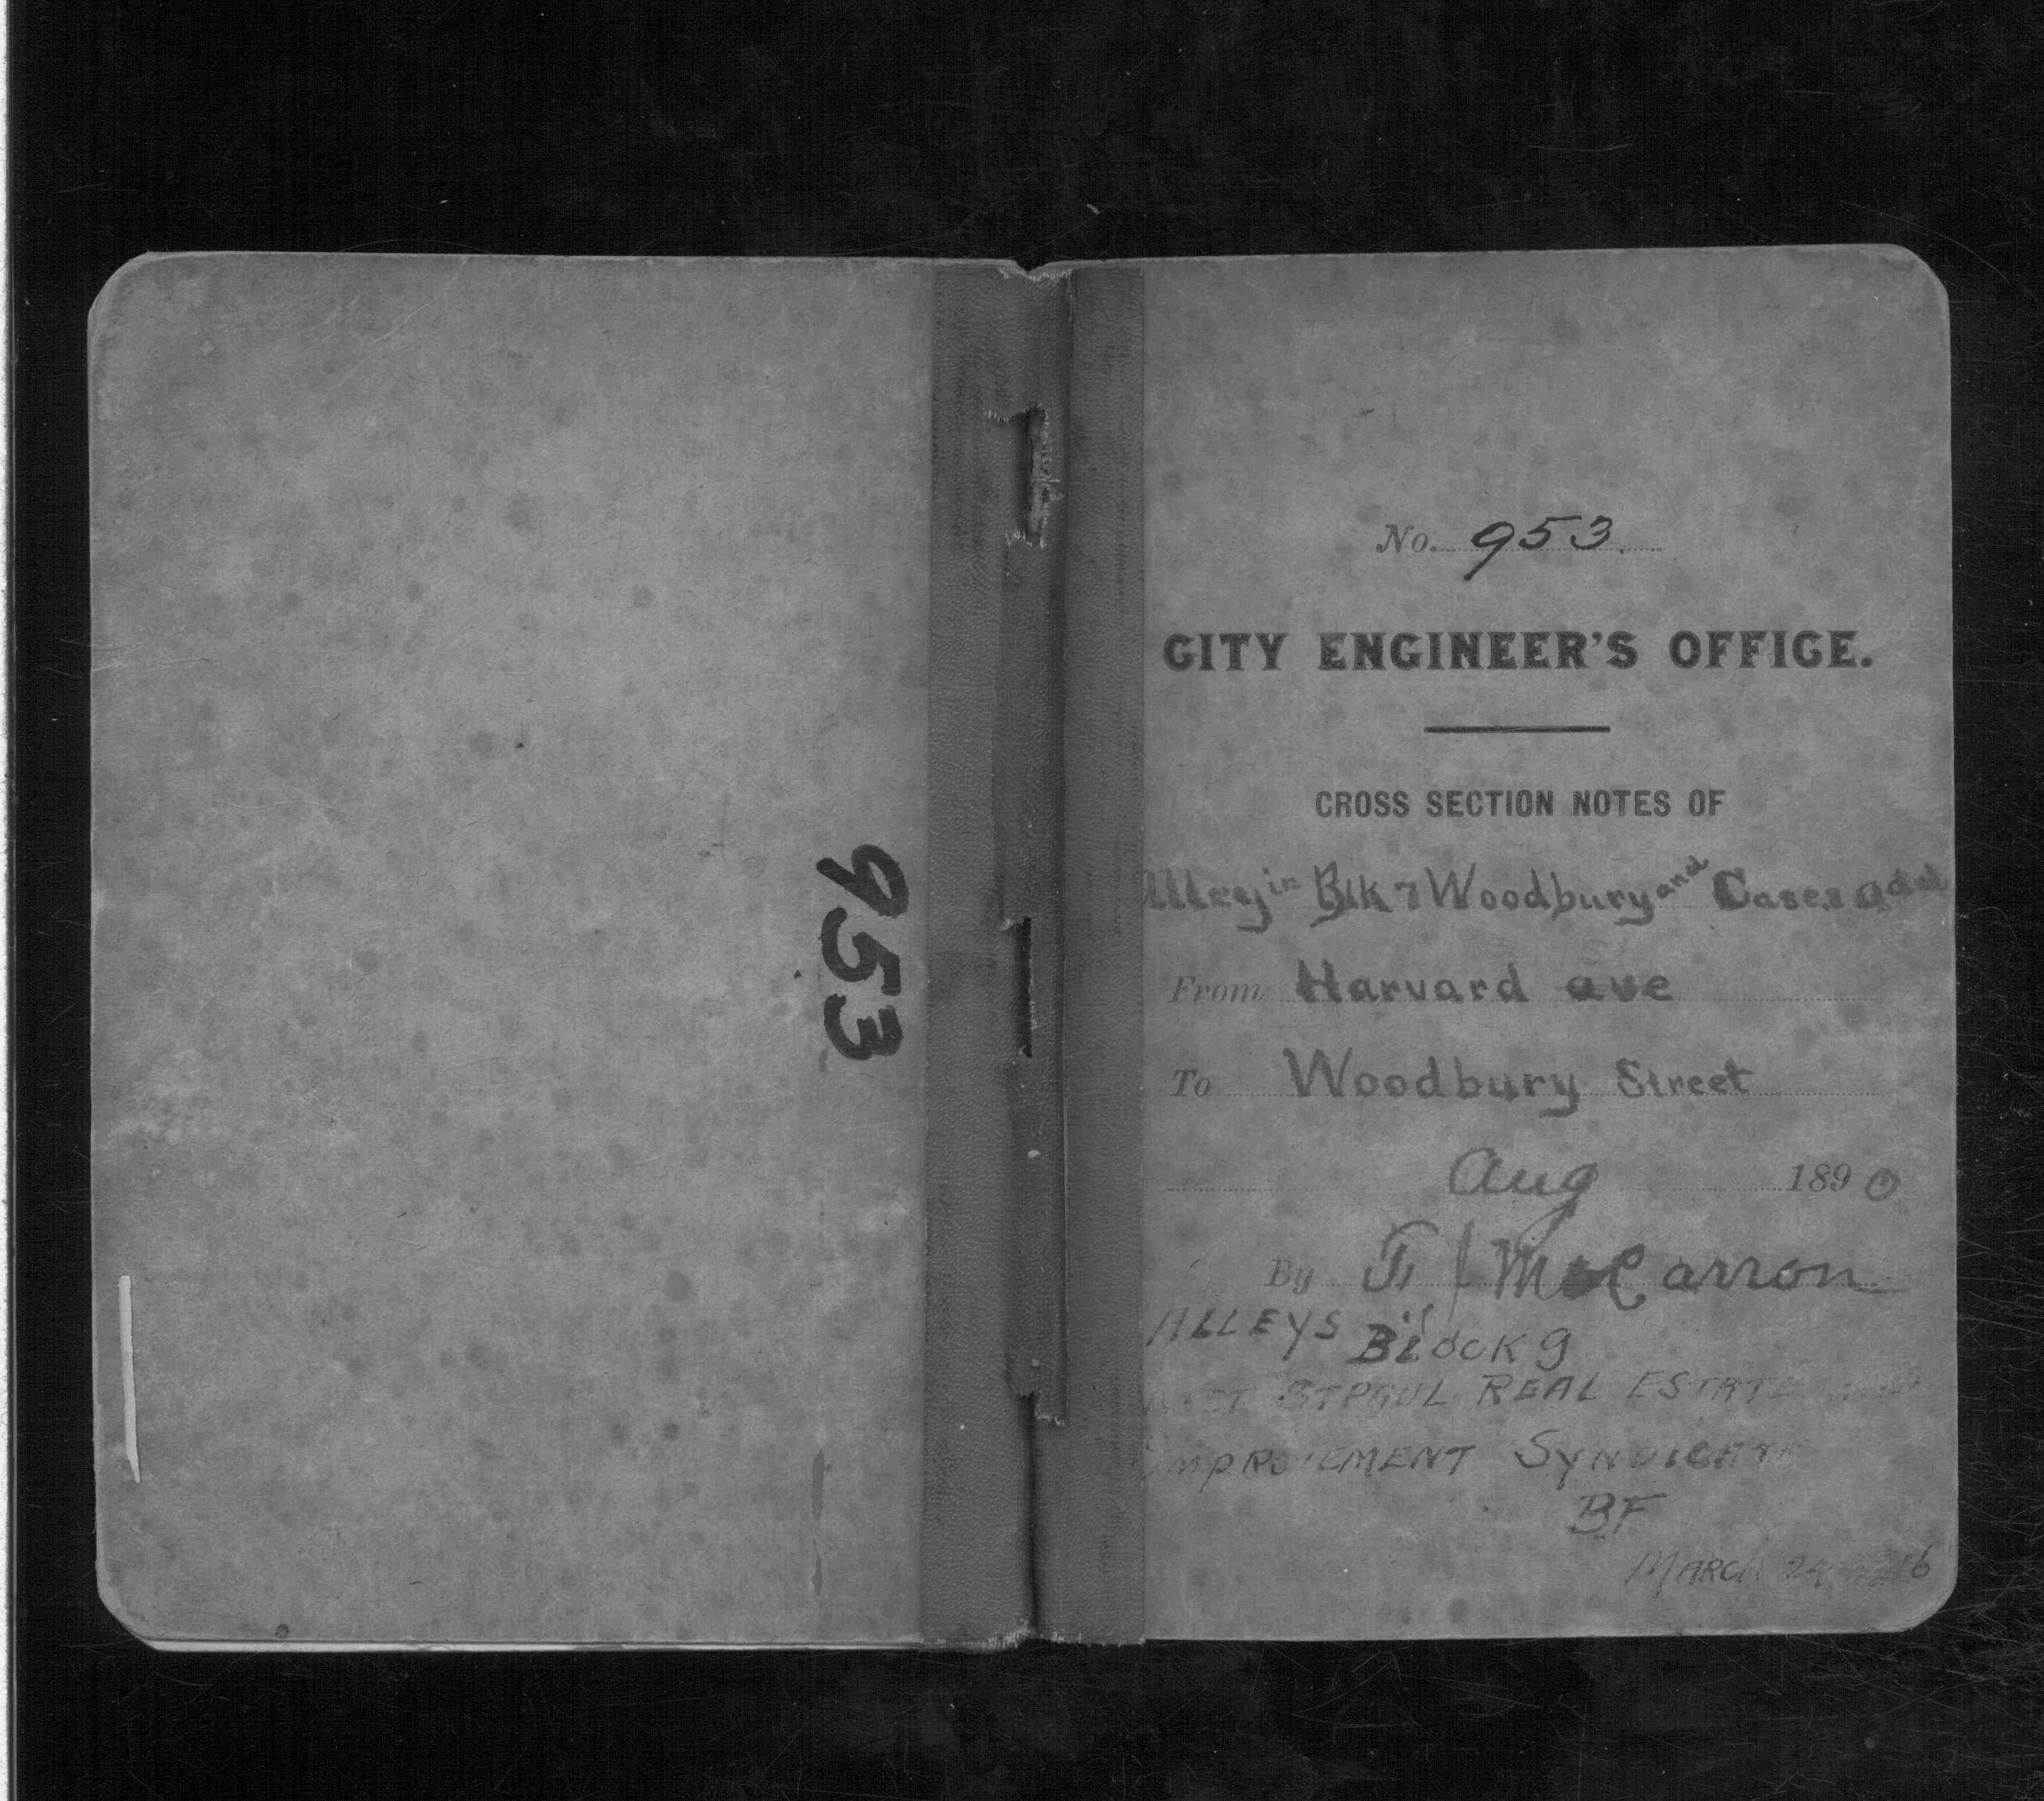 953
No. 953
CITY ENGINEER'S OFFICE.
CROSS SECTION NOTES OF
Alley in Blk 7 Woodbury and Cases
From Harvard ave
To Woodbury Street
Aug 1890
By McCarron
ALLEYS Block 9
ST PAUL REAL ESTATE
IMPROVEMENT SYNDICATE
BF
MARCH